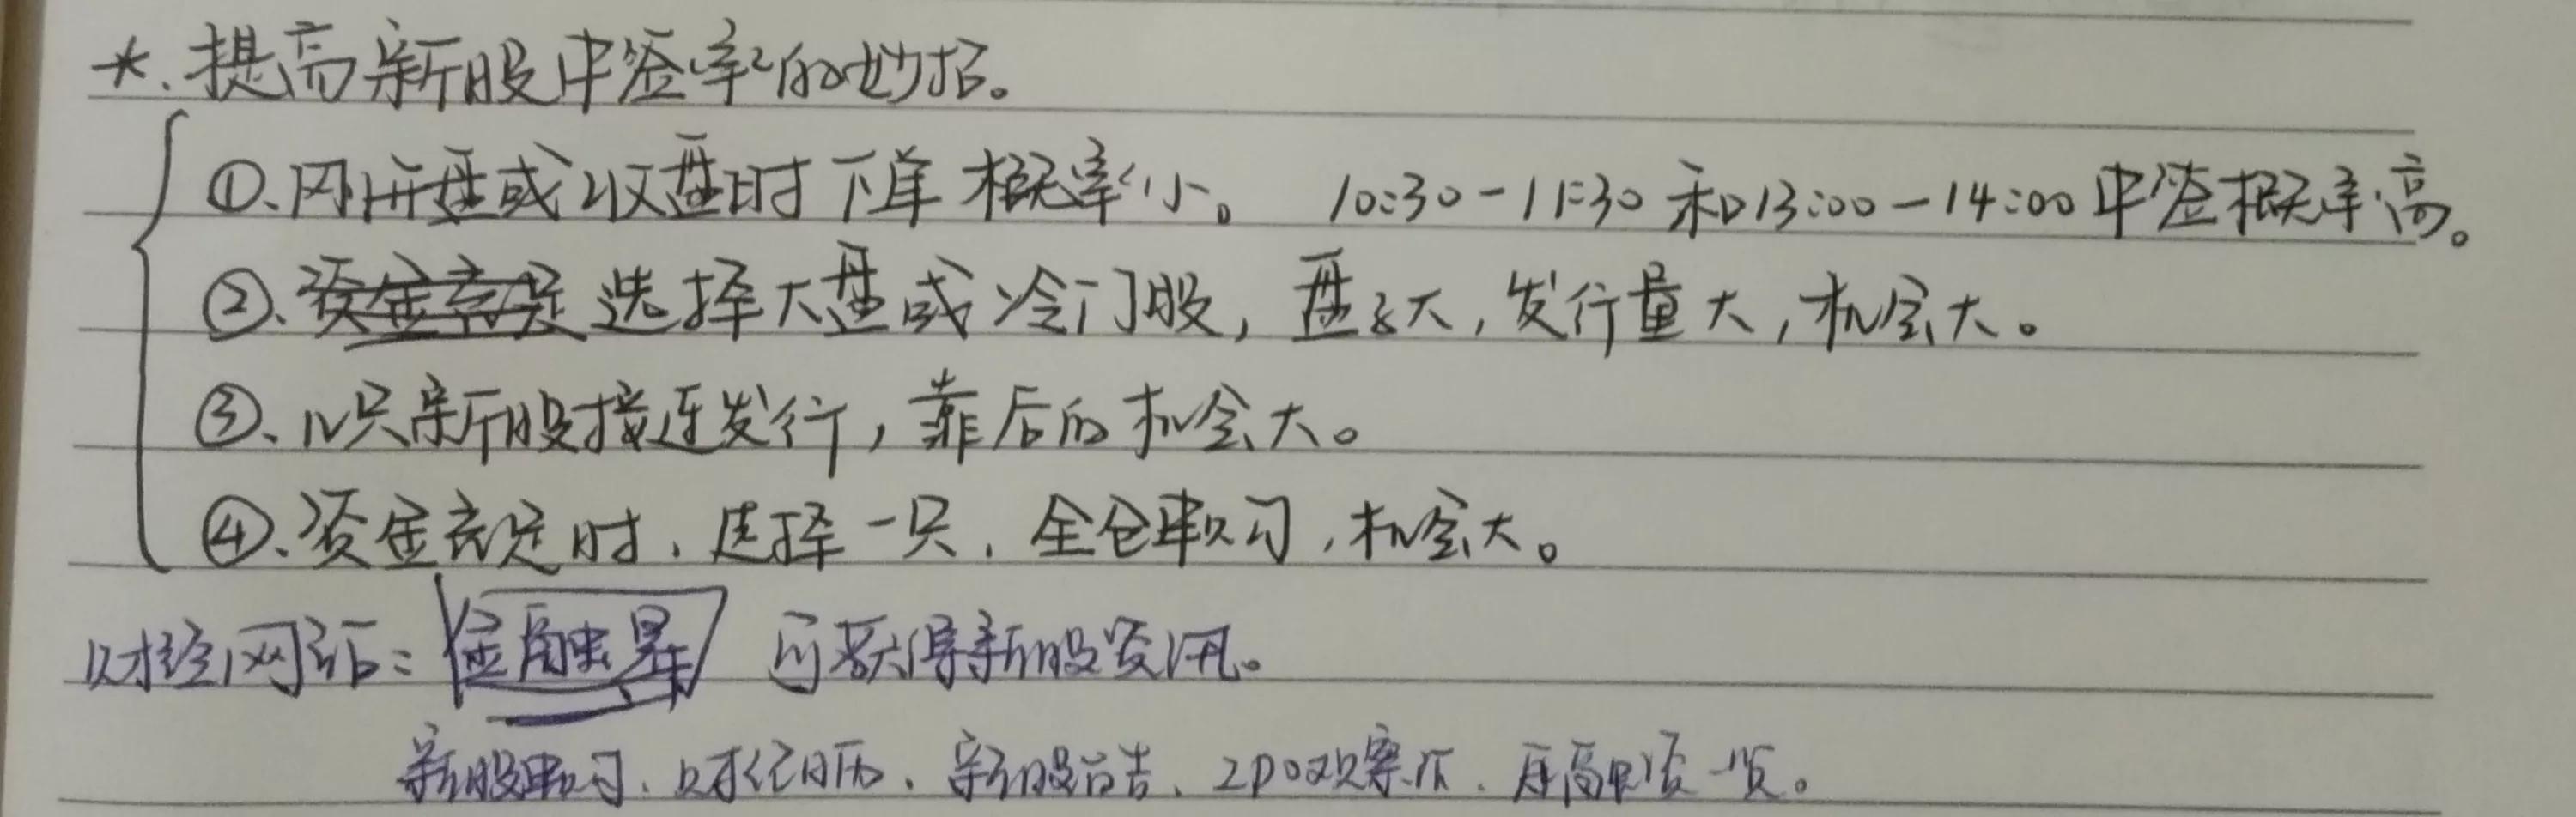 *.提高新股中签率的妙招。
①、刚开盘或收盘时下单概率小。 10:30-11:30和13:00-14:00中签概率高。
②、资金充足选择大盘或冷门股,盘子大,发行量大,机会大。
③、几只新股接连发行,靠后的机会大。
④、资金充足时,选择一只,全仓申购,机会大。
财经网站:金融界 可获得新股资讯。
新股申购、财经日历、新股公告、IPO观察